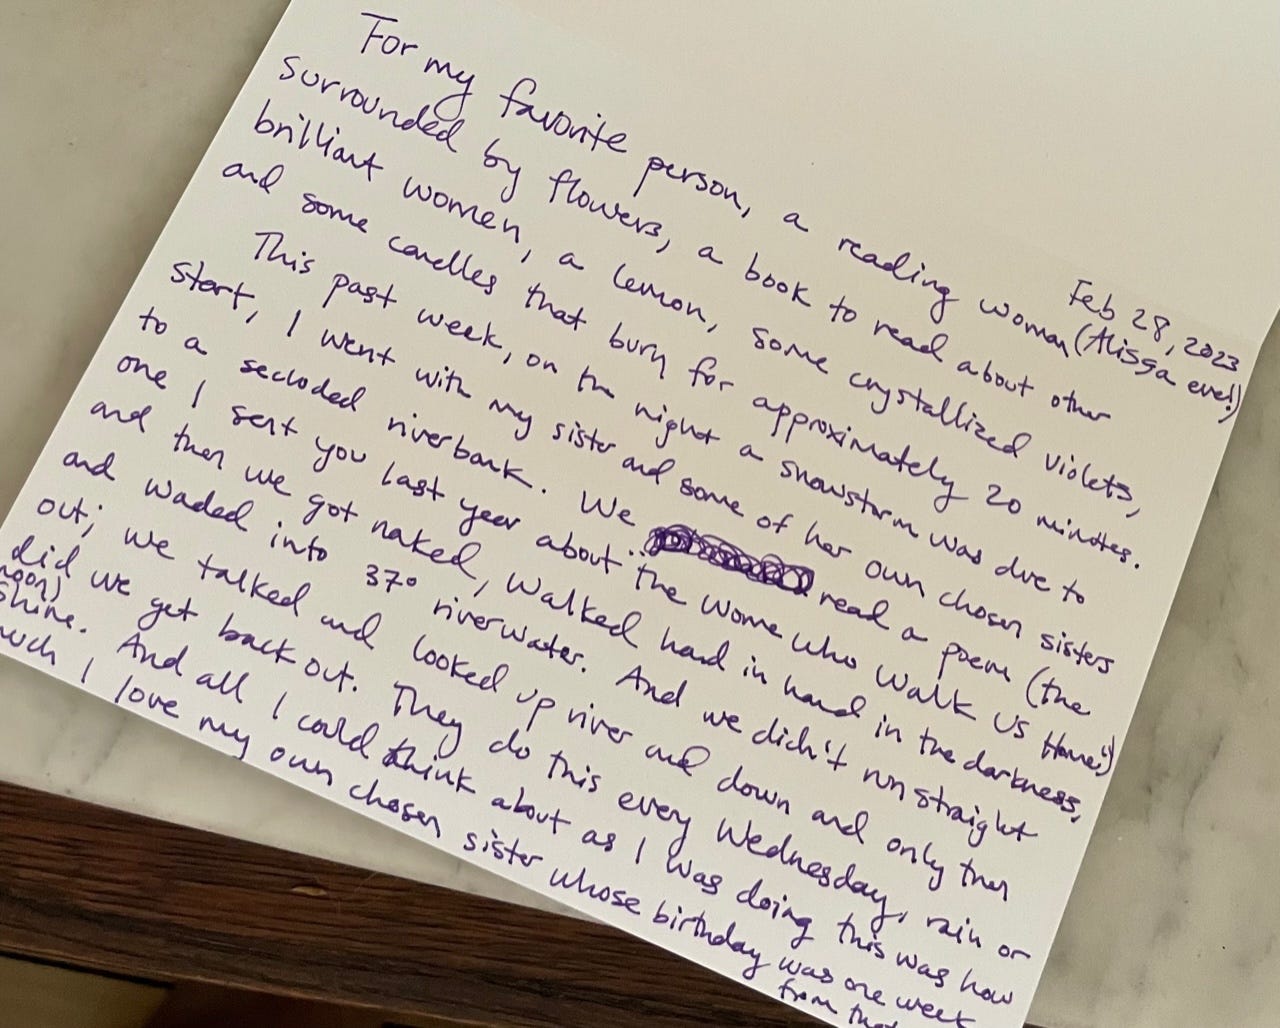 Feb 28, 2023
For my favorite person, a reading woman (Alissa ever!)
surrounded by flowers, a book to read about other
brilliant women, a lemon, some crystallized violets,
and some candles that burn for approximately 20 minutes.
This past week, on the night a snowstorm was due to
start, I went with my sister and some of her own chosen sisters
to a secluded riverbank. We read a poem (the
one I sent you last year about "the Women who Walk Us Home")
and then we got naked, walked hand in hand in the darkness,
and waded into 37° riverwater. And we didn't run straight
out; we talked and looked up river and down and only then
did we get back out. They do this every Wednesday, rain or
(moon)
shine. And all I could think about as I was doing this was how
much I love my own chosen sister whose birthday was one week
from that